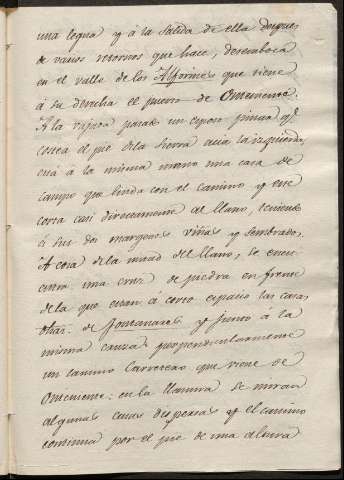 una legua y á la salida de ella despues
de varios retornos que hace, desemboca
en el valle de los Alforines que viene
á su derecha el puerto de Onteniente.
A la vajada pasase un espeso pinar qe
costea el pie de la sierra acia la izquierda,
está á la misma mano una casa de
campo que linda con el camino y este
corta casi directamente al llano, teniendo
á sus dos margenes viñas y sembrados.
A cosa de la mitad del llano, se encu
entra una cruz de piedra en frente
de la que estan á corto espacio las casas
dhas. de Fontanares y junto á la
misma cruza perpendicularmente
un camino Carretero que viene de
Onteniente: en la llanura se miran
algunas casas despersas y el camino
continua por el pie de una altura